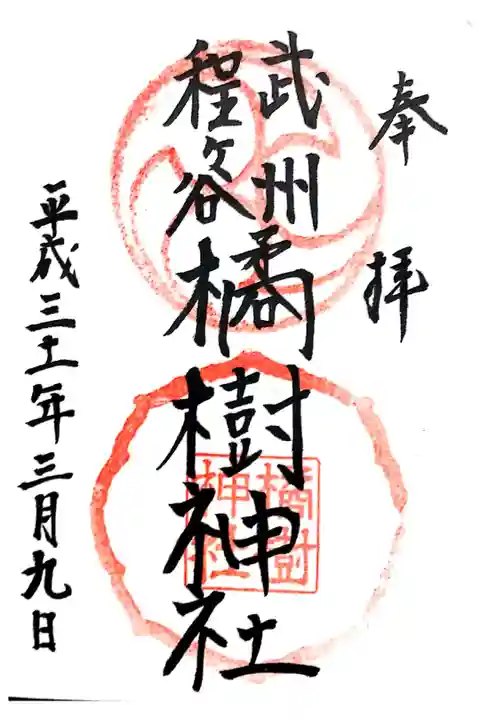 奉拝
武州
程ヶ谷
橘樹神社
平成三十一年三月九日
橘樹
神社